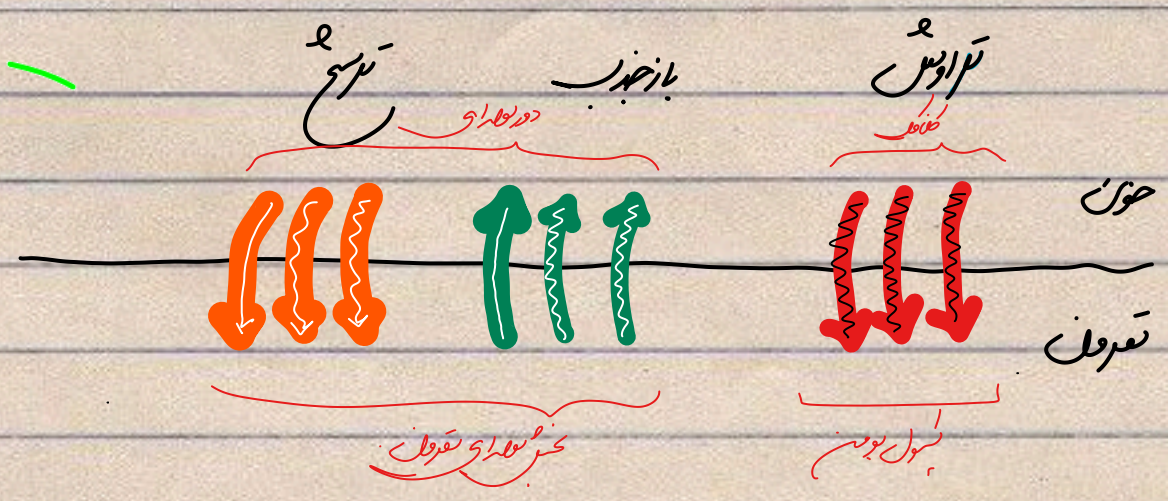 تراوش بازجذب ترشح
کلافک دورلوله‌ای
خون
نفرون
کپسول بومن بخش لوله‌ای نفرون